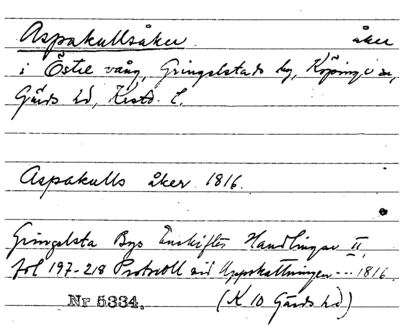 Aspakullsåker åker
i Östre vång, Gringelstads by, Köpinge sn,
Gärds hd, Krstd. L.
Aspakulls åker 1816.
Gringelsta Byes Enskiftes Handlingar II,
fol 197-218 Protocoll vid Uppskattningen --- 1816
Nr 5334. (K 10 Gärds hd)